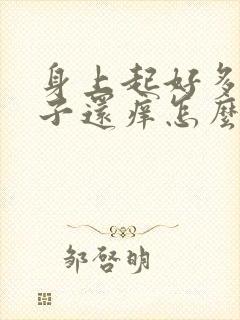 身上起好多
子還痒怎麼
邹啓明